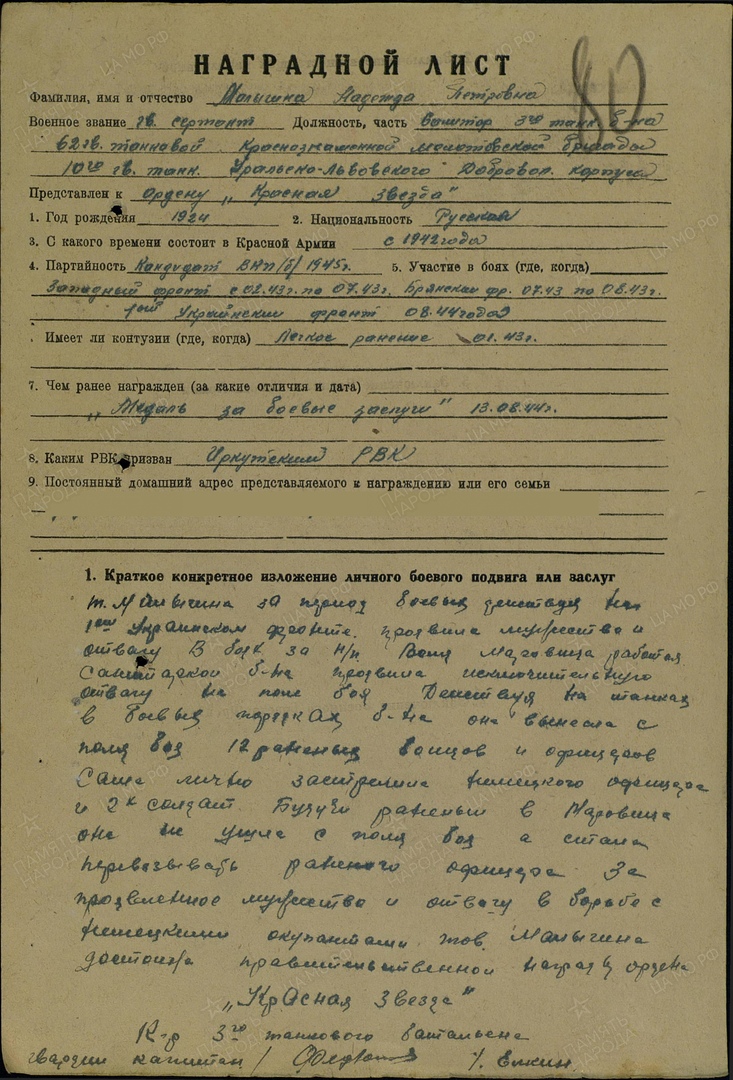 80
НАГРАДНОЙ ЛИСТ
Фамилия, имя и отчество Малышна Надежда Петровна
Военное звание гв. сержант Должность, часть 3го танк. б-на
62 гв. танковой Краснознаменной Молотовской бригады
10го гв. танк. Уральско-Львовского Добровол. корпуса
Представлен к Ордену „Красная Звезда"
1. Год рождения 1924 2. Национальность Русская
3. С какого времени состоит в Красной Армии с 1942 года
4. Партийность Кандидат ВКП/б/ 1945г. 5. Участие в боях (где, когда)
Западный фронт с 02.43г. по 07.43г. Брянский фр. 07.43 по 08.43г.
1ый Украинский фронт 08.44 года
Имеет ли контузии (где, когда) Легкое ранение 01.43г.
7. Чем ранее награжден (за какие отличия и дата)
„Медаль за боевые заслуги" 13.08.44г.
8. Каким РВК призван Иркутским РВК
9. Постоянный домашний адрес представляемого к награждению или его семьи
1. Краткое конкретное изложение личного боевого подвига или заслуг
т. за период боевых действий на
1ом Украинском фронте. проявила мужество и
отвагу В боях за н/п. Маровица работая
б-на проявила исключительную
отвагу на поле боя Действуя на танках
в боевых порядках б-на она вынесла с
поля боя 12 раненых бойцов и офицеров
Сама лично застрелила немецкого офицера
и 2х солдат. Будучи раненый в Маровица
она не ушла с поля боя а стала
перевязывать раненого офицера За
проявленное мужество и отвагу в борьбе с
немецкими окупантами тов. Малычина
достойна правительственной награды ордена
„Красная Звезда"
К-р 3го танкового батальена
гвардии капитан / / Елкин